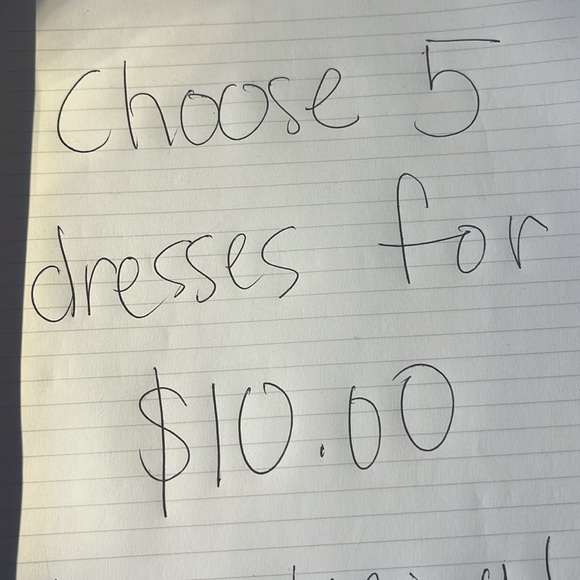 Choose 5
dresses for
$10.00